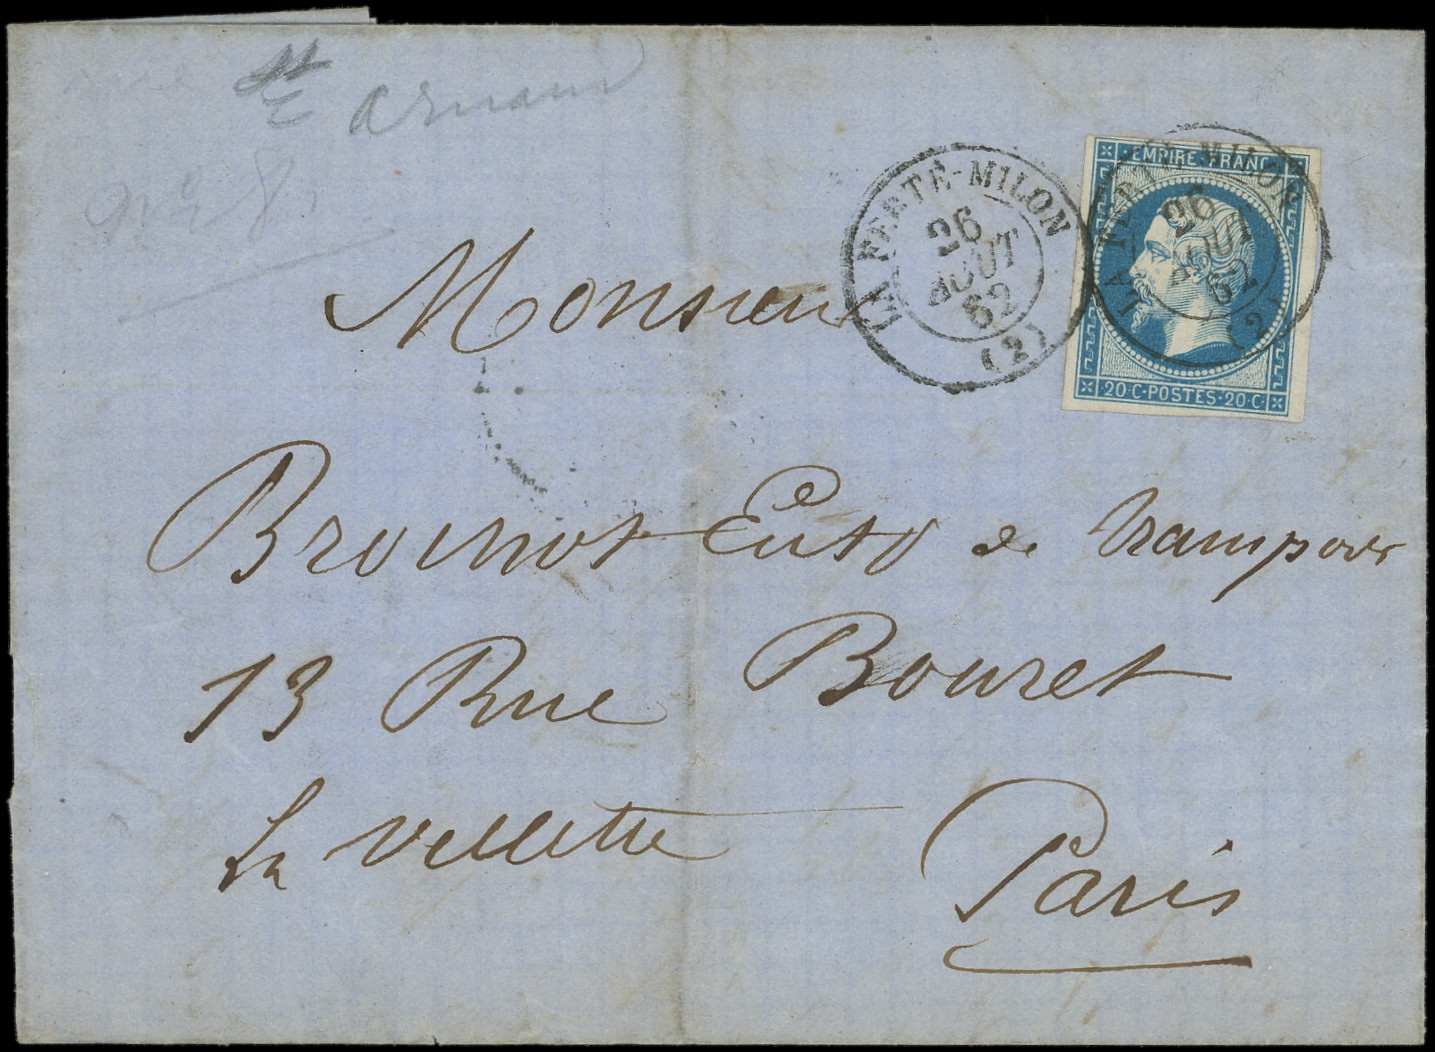 LA FERTÉ-MILON
26
AOUT
62
(2)
EMPIRE FRANC
LA FERTÉ-MILON
26
AOUT
62
(2)
20·C·POSTES·20·C·
Monsieur
de transport
13 Rue Bouret
la villette
Paris